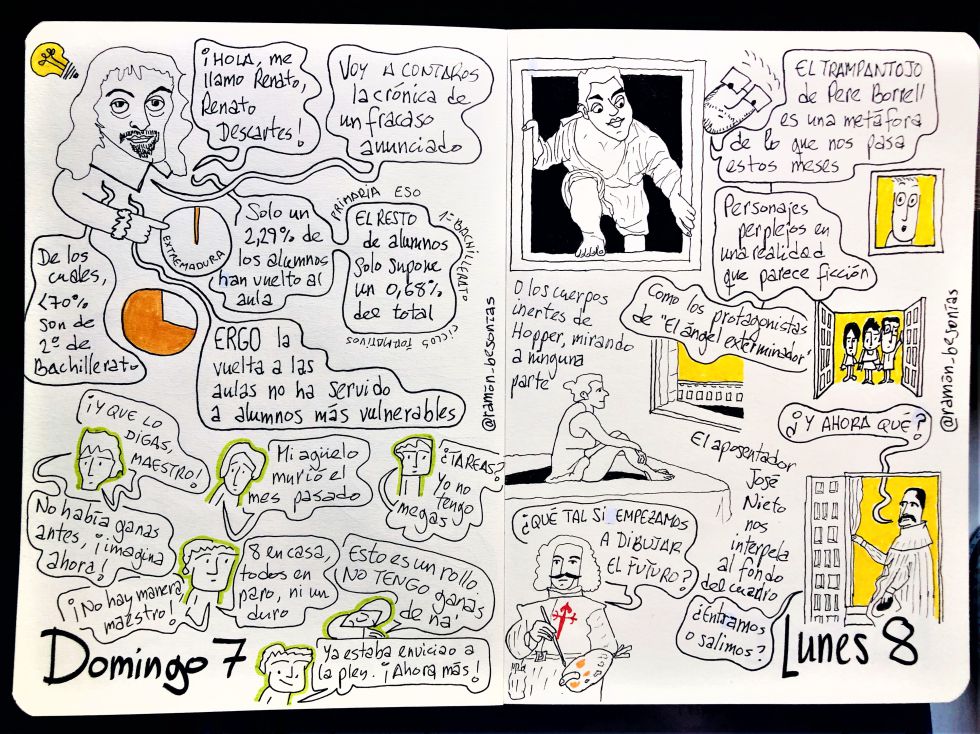 ¡HOLA, me
llamo Renato,
Renato
Descartes!
VOY A CONTAROS
la crónica de
un fracaso
anunciado
EXTREMADURA
Solo un
2,29% de
los alumnos
han vuelto al
aula
PRIMARIA ESO
1º BACHILLERATO
CICLOS FORMATIVOS
EL RESTO
de alumnos
solo supone
un 0,68%
del total
De los
cuales,
<70%
son de
2º de
Bachillerato
ERGO la
vuelta a las
aulas no ha servido
a alumnos más vulnerables
@ramón_besonías
¡Y QUE LO
DIGAS,
MAESTRO!
Mi agüelo
murió el
mes pasado
¿TAREAS?
Yo no
tengo
megas
No había ganas
antes, ¡imagina
ahora!
¡No hay manera
maestro!
8 en casa,
todos en
paro, ni un
duro
Esto es un rollo
NO TENGO ganas
de na'
Ya estaba enviciao a
la pley. ¡Ahora más!
Domingo 7
EL TRAMPANTOJO
de Pere Borrell
es una metáfora
de lo que nos pasa
estos meses
Personajes
perplejos en
una realidad
que parece ficción
Como los protagonistas
de "El ángel exterminador"
O los cuerpos
inertes de
Hopper, mirando
a ninguna
parte
@ramón_besonías
¿Y AHORA QUÉ?
El aposentador
José
Nieto
nos
interpela
al fondo
del cuadro
¿Entramos
o salimos?
¿QUÉ TAL SI EMPEZAMOS
A DIBUJAR
EL FUTURO?
Lunes 8